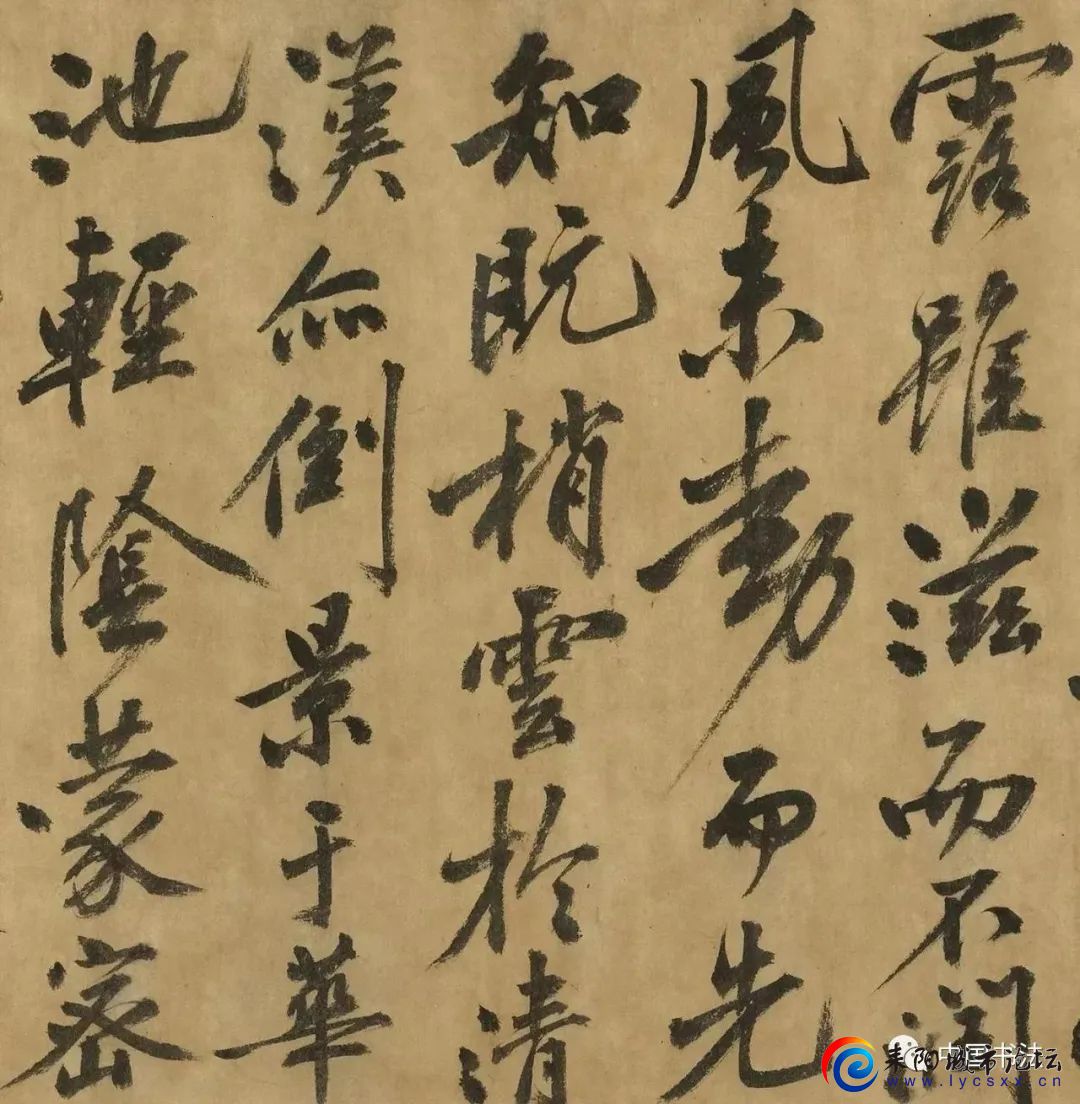 露雖滋而不潤
風未動而先
知既梢雲於清
漢亦倒景于華
池輕陰蒙密
中国书法
耒阳城市论坛
www.lycsxx.cn